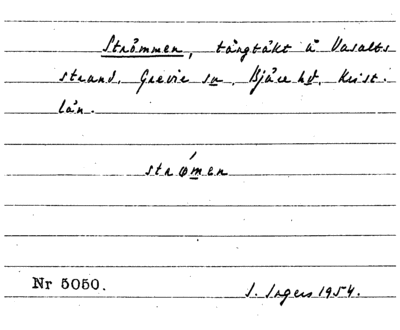 Strömmen, tångtäkt å Vasalts
strand. Grevie sn. Bjäre hd. Krist.
län.
strømen
Nr 5050.
I. Ingers 1954.